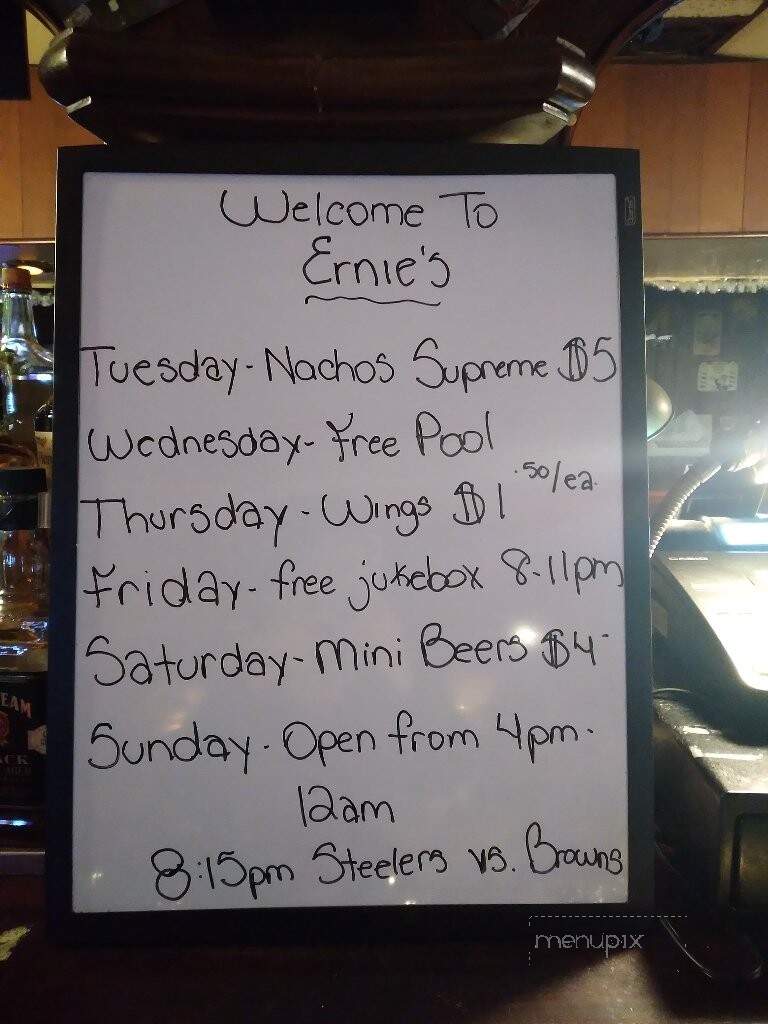 Welcome To
Ernie's
Tuesday - Nachos Supreme $5
Wednesday - Free Pool
Thursday - Wings $1.50/ea.
Friday - free jukebox 8-11pm
Saturday - Mini Beers $4-
Sunday - Open from 4pm-
12am
8:15pm Steelers vs. Browns
EAM
menupix